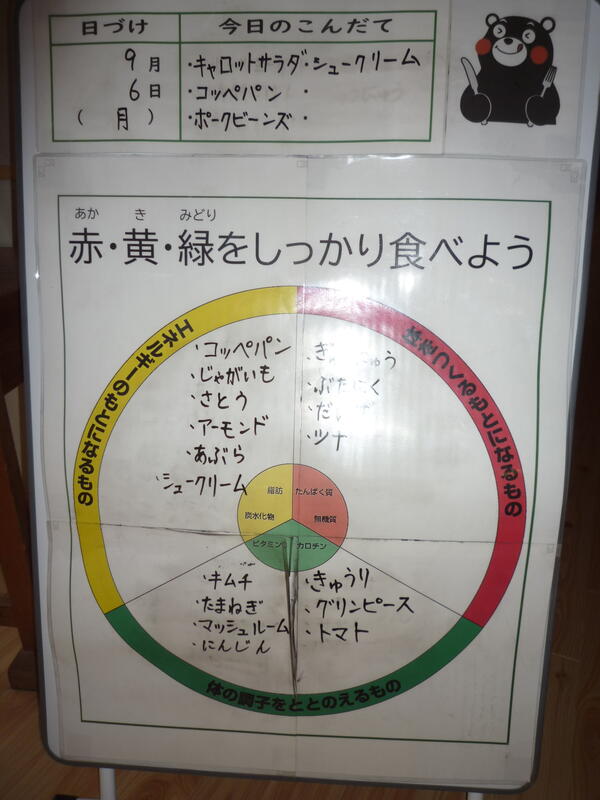 日づけ 今日のこんだて
9月 ・キャロットサラダ・シュークリーム
6日 ・コッペパン ・
(月) ・ポークビーンズ ・
あか き みどり
赤・黄・緑をしっかり食べよう
エネルギーのもとになるもの
体をつくるもとになるもの
・コッペパン
・じゃがいも
・さとう
・アーモンド
・あぶら
・シュークリーム
・ぶたにく
・ツナ
脂肪 たんぱく質
炭水化物 無機質
ビタミン カロチン
・キムチ
・たまねぎ
・マッシュルーム
・にんじん
・きゅうり
・グリンピース
・トマト
体の調子をととのえるもの